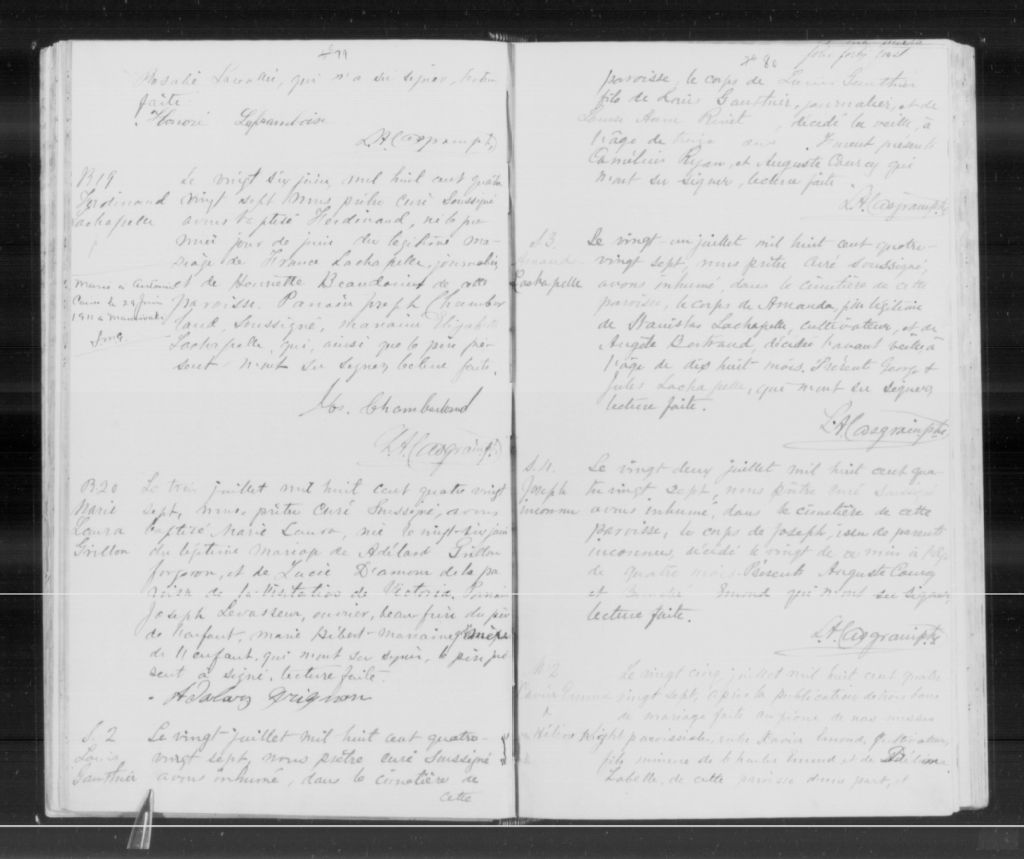 #79
Rosalie qui n'a su signer, lecture
faite.
Honoré Laframboise
L.A. Casgrain ptre
B19
Ferdinand
Lachapelle
Le vingt six juin, mil huit cent quatre
vingt sept nous prêtre curé soussigné
avons baptisé Ferdinand, né le pre
mier jour de juin du légitime ma-
riage de France Lachapelle, journalier
et de Henriette Beaudoin de cette
paroisse. Parrain Joseph Chamber
land, soussigné, marraine Elizabeth
Lachapelle, qui, ainsi que le père pré-
sent n'ont su signer, lecture faite.
Marié à
le 29 juin
1911 à Maniwaki
Jos. Chamberland
L.A. Casgrain ptre
B20
Marie
Laura
Grillon
Le trois juillet mil huit cent quatre vingt
sept, nous prêtre curé soussigné, avons
baptisé Marie Laura, née le vingt-six juin
du légitime mariage de Adélard
forgeron, et de Lucie D'amour de la pa
roisse de la Visitation de Victoria. Parrain
Joseph Levasseur, ouvrier, beau frère du père
de l'enfant, marie Hébert marraine
de l'enfant, qui n'ont su signer, le père pré
sent a signé, lecture faite.
S. 2
Louis
Gauthier
Le vingt juillet mil huit cent quatre-
vingt sept, nous prêtre curé soussigné
avons inhumé, dans le cimetière de
cette
#80
paroisse, le corps de Louis Gauthier
fils de Louis Gauthier, journalier, et de
Anne, décédé la veille, à
l'âge de ans. Furent présents
Cornélius Ryan, et Auguste Courcy qui
n'ont su signer, lecture faite.
L.A. Casgrain ptre
S3.
Amanda
Lachapelle
Le vingt-un juillet mil huit cent quatre-
vingt sept, nous prêtre curé soussigné,
avons inhumé, dans le cimetière de cette
paroisse, le corps de Amanda, fille légitime
de Stanislas Lachapelle, cultivateur, et de
Angèle Bertrand, décédée l'avant veille à
l'âge de dix huit mois. Présents George &
Jules Lachapelle, qui n'ont su signer,
lecture faite.
L.A. Casgrain ptre
S.4.
Joseph
inconnu
Le vingt deux juillet mil huit cent qua
tre vingt sept, nous prêtre curé soussigné
avons inhumé, dans le cimetière de cette
paroisse, le corps de Joseph, issu de parents
inconnus, décédé le vingt de ce mois à l'âge
de quatre mois. Présents Auguste Courcy
et Emond qui n'ont su signer
lecture faite.
L.A. Casgrain ptre
M2
Xavier Emond
&
Wright
Le vingt cinq juillet mil huit cent quatre
vingt sept, après la publication de trois bans
de mariage faite au prône de nos messes
paroissiales, entre Xavier Emond, cultivateur,
fils mineur de Charles Emond et de
Labelle, de cette paroisse d'une part, et